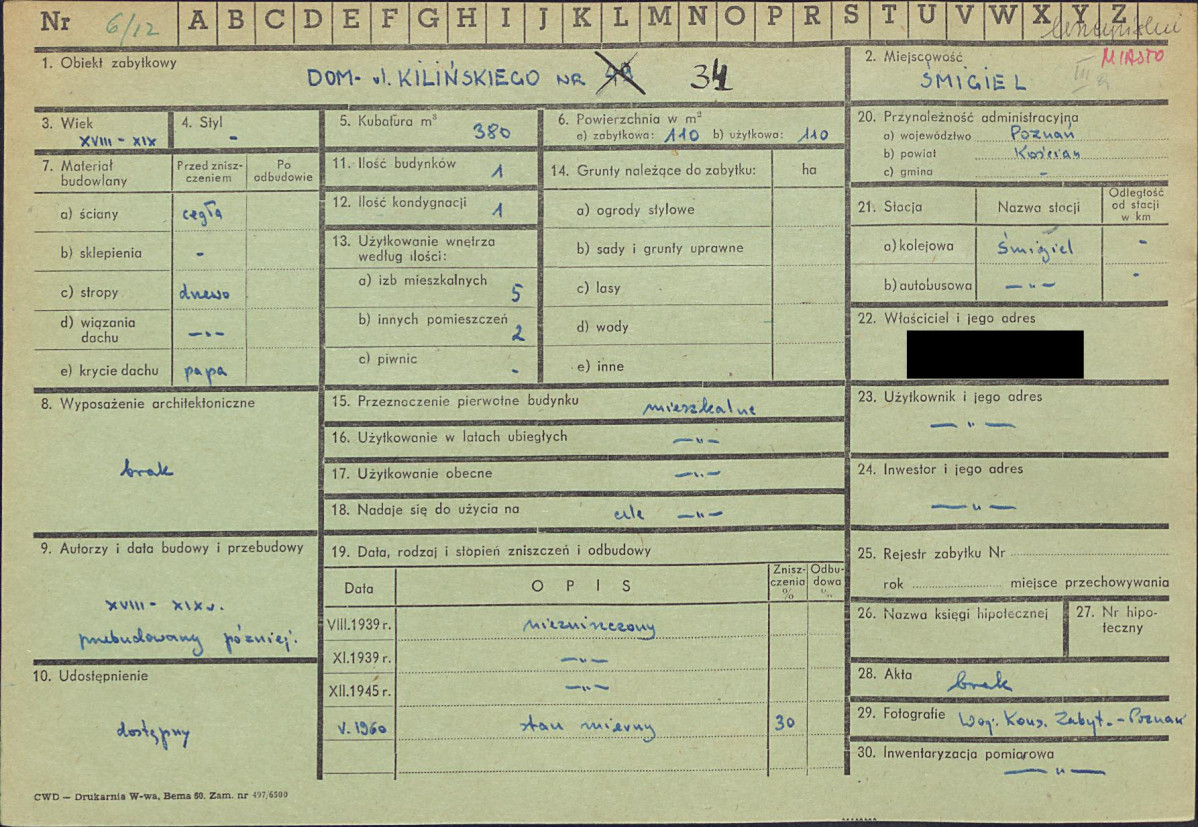 Nr 6/12 A B C D E F G H I J K L M N O P R S T U V W X Y Z
1. Obiekt zabytkowy
DOM - ul. KILIŃSKIEGO NR 34
2. Miejscowość MIASTO
ŚMIGIEL III
3. Wiek
XVIII - XIX
4. Styl
-
5. Kubatura m³
380
6. Powierzchnia w m²
a) zabytkowa: 110 b) użytkowa: 110
20. Przynależność administracyjna
a) województwo Poznań
b) powiat Kościan
c) gmina -
7. Materiał budowlany
Przed zniszczeniem
Po odbudowie
a) ściany cegła
b) sklepienia -
c) stropy drewo
d) wiązania dachu —„—
e) krycie dachu papa
11. Ilość budynków 1
12. Ilość kondygnacji 1
13. Użytkowanie wnętrza
według ilości:
a) izb mieszkalnych 5
b) innych pomieszczeń 2
c) piwnic -
14. Grunty należące do zabytku: ha
a) ogrody stylowe
b) sady i grunty uprawne
c) lasy
d) wody
e) inne
21. Stacja
Nazwa stacji
Odległość
od stacji
w km
a) kolejowa Śmigiel -
b) autobusowa —„— -
22. Właściciel i jego adres
8. Wyposażenie architektoniczne
brak
15. Przeznoczenie pierwotne budynku mieszkalne
16. Użytkowanie w latach ubiegłych —„—
17. Użytkowanie obecne —„—
18. Nadaje się do użycia na cele —„—
23. Użytkownik i jego adres
—„—
24. Inwestor i jego adres
—„—
9. Autorzy i data budowy i przebudowy
XVIII - XIX w.
przebudowany później.
10. Udostępnienie
dostępny
19. Data, rodzaj i stopień zniszczeń i odbudowy
Data
OPIS
Zniszczenia %
Odbudowa „
VIII.1939 r. niezniszczony
XI.1939 r. —„—
XII.1945 r. —„—
V. 1960 stan mierny 30
25. Rejestr zabytku Nr
rok miejsce przechowywania
26. Nazwa księgi hipotecznej
27. Nr hipoteczny
28. Akta
brak
29. Fotografie Woj. Kons. Zabyt. - Poznań
30. Inwentaryzacja pomiarowa
—„—
CWD — Drukarnia W-wa, Bema 60. Zam. nr 497/6500